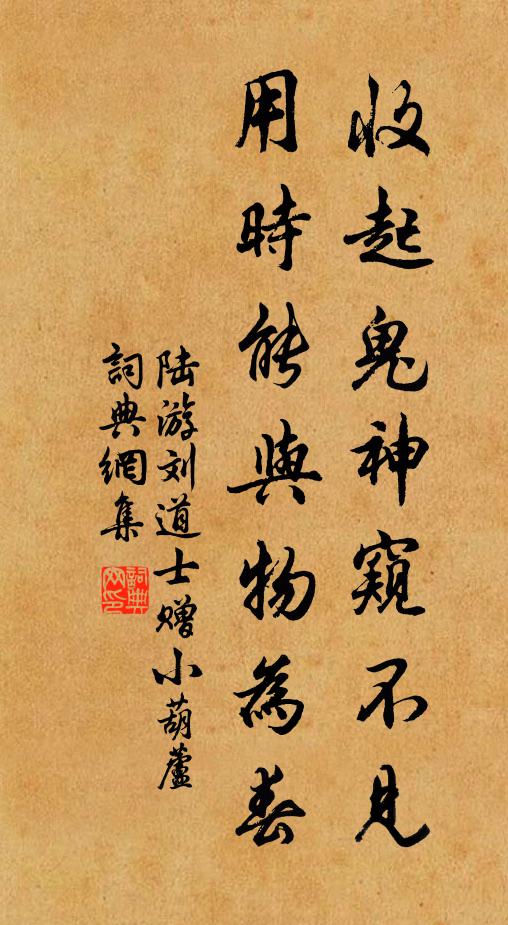 收起鬼神窺不見
用時能與物為春
陆游刘道士赠小葫蘆
詞典網集
詞典
网印